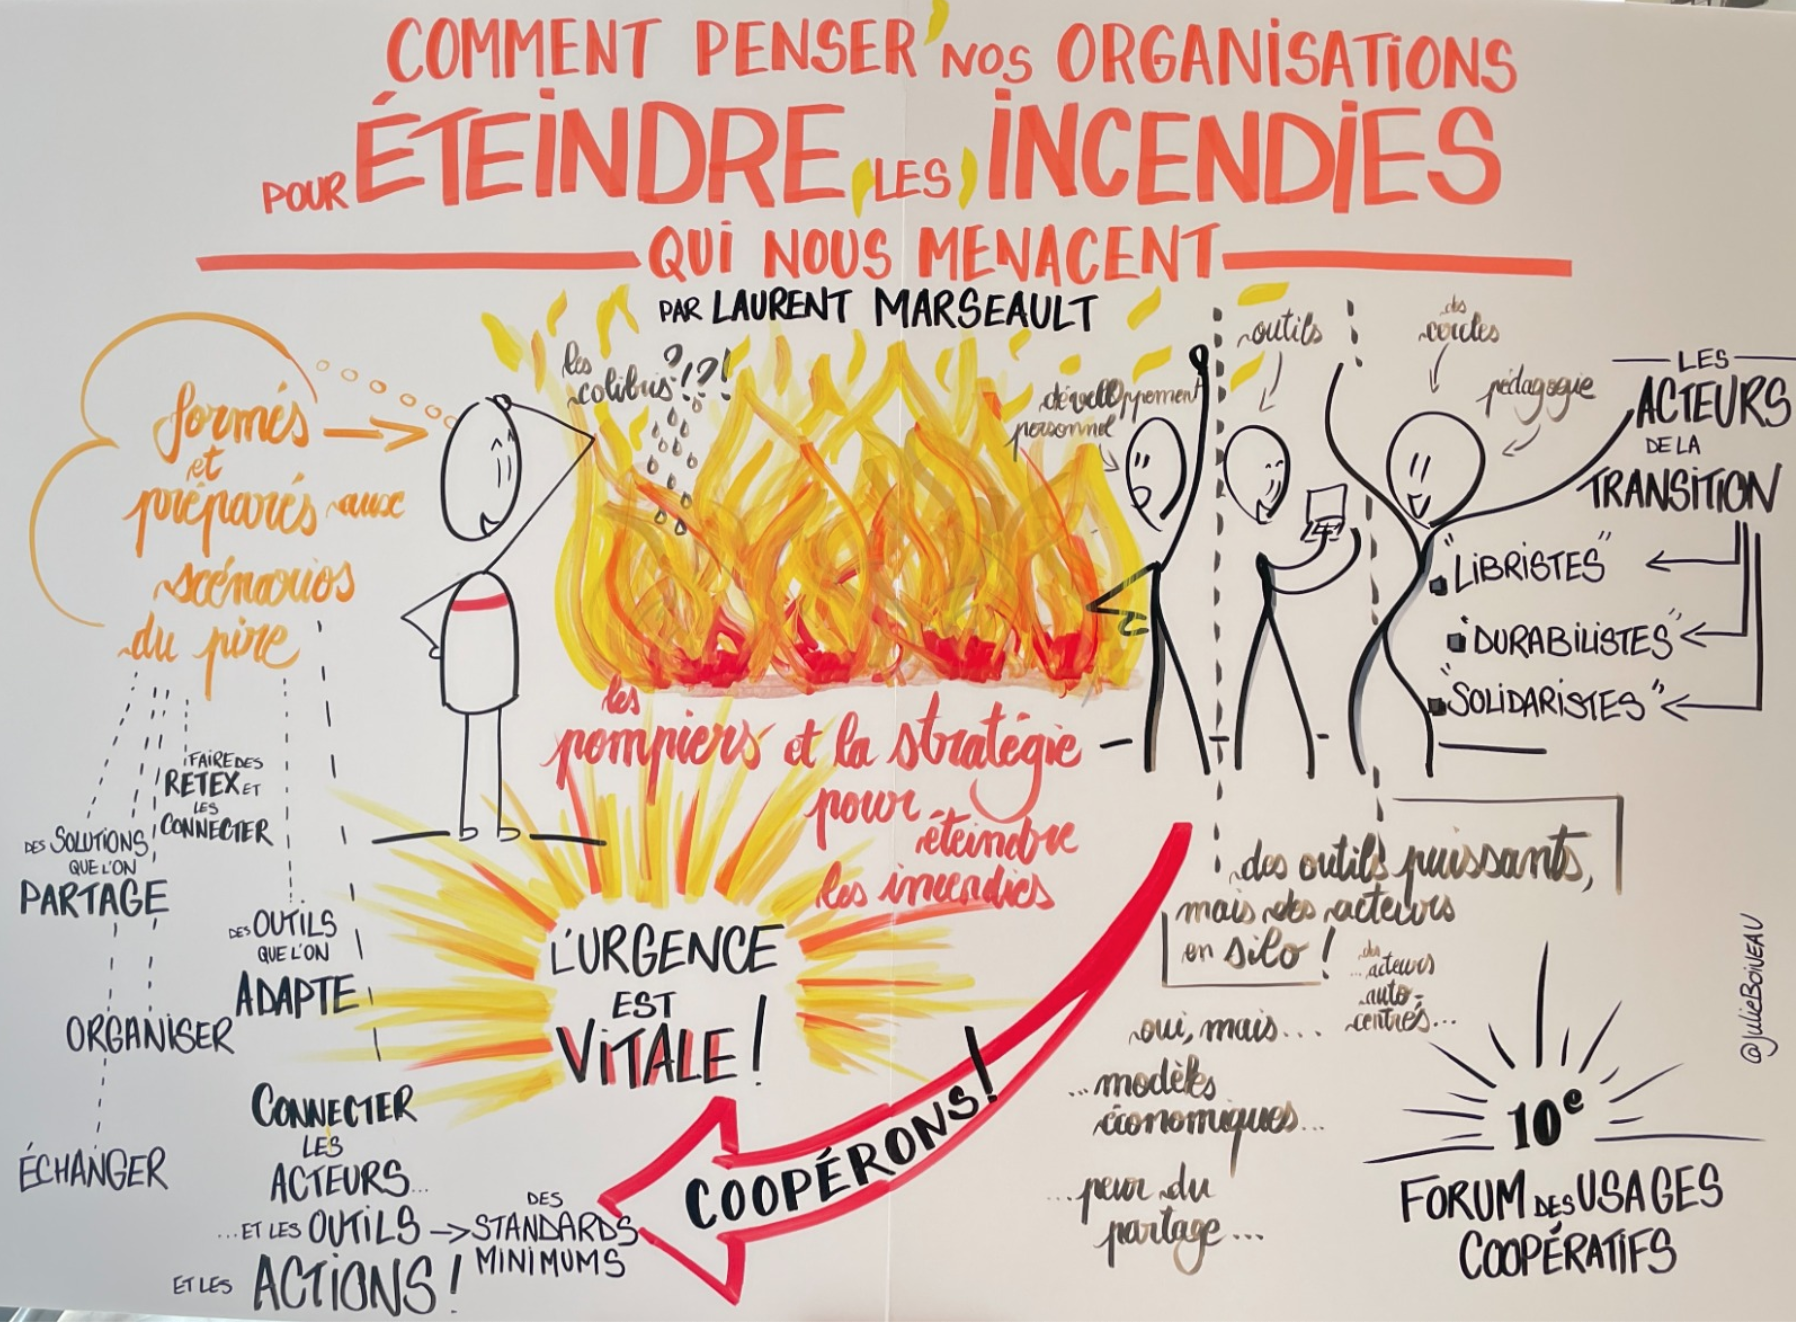 COMMENT PENSER NOS ORGANISATIONS
POUR ÉTEINDRE LES INCENDIES
QUI NOUS MENACENT
PAR LAURENT MARSEAULT
formés
et
préparés aux
scénarios
du pire
les
colibris?!?!
développement
personnel
outils
des
cercles
pédagogie
LES
ACTEURS
DE LA
TRANSITION
"LIBRISTES"
"DURABILISTES"
"SOLIDARISTES"
les
pompiers et la stratégie
pour
éteindre
les incendies
FAIRE DES
RETEX ET
LES
CONNECTER
DES SOLUTIONS
QUE L'ON
PARTAGE
DES OUTILS
QUE L'ON
ADAPTE
ORGANISER
ÉCHANGER
CONNECTER
LES
ACTEURS...
...ET LES OUTILS → DES
STANDARDS
MINIMUMS
ET LES ACTIONS!
L'URGENCE
EST
VITALE!
COOPÉRONS!
des outils puissants,
mais des acteurs
en silo!
des
...acteurs
auto-
centrés...
oui, mais...
...modèles
économiques...
...peur du
partage...
10e
FORUM DES USAGES
COOPÉRATIFS
@JULIEBOIVEAU